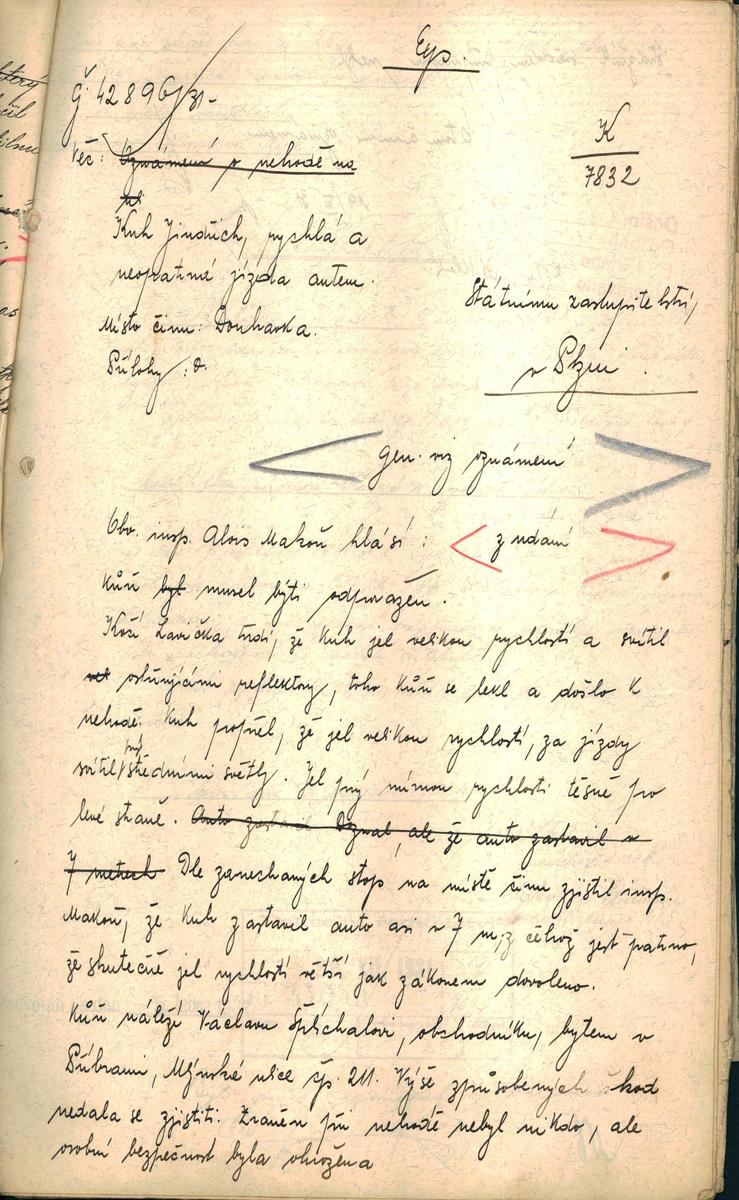 Exp.
Č. 42896/31-
K
7832
Věc: Oznámení o nehodě na
Kuh Jindřich, rychlá a
neopatrná jízda autem.
Místo činu: Doubravka.
Přílohy: 0.
Státnímu zastupitelství,
v Plzni.
gen. viz oznámení
Obv. insp. Alois Makoň hlásí: z udání
Kůň byl musel býti odpražen.
Kočí Lavička tvrdí, že Kuh jel velikou rychlostí a svítil
oslňujícími reflektory, toho kůň se lekl a došlo k
nehodě. Kuh popřel, že jel velikou rychlostí, za jízdy
svítil prý středními světly. Jel prý mírnou rychlostí těsně po
levé straně. Auto zastavil Doznal, ale že auto zastavil v
7 metrech Dle zanechaných stop na místě činu zjistil insp.
Makoň, že Kuh zastavil auto asi v 7 m, z čehož jest patrno,
že skutečně jel rychlostí větší jak zákonem dovoleno.
Kůň náleží Václavu Šplíchalovi, obchodníku, bytem v
Příbrami, Mlýnská ulice čp. 211. Výše způsobených škod
nedala se zjistiti. Zraněn při nehodě nebyl nikdo, ale
osobní bezpečnost byla ohrožena